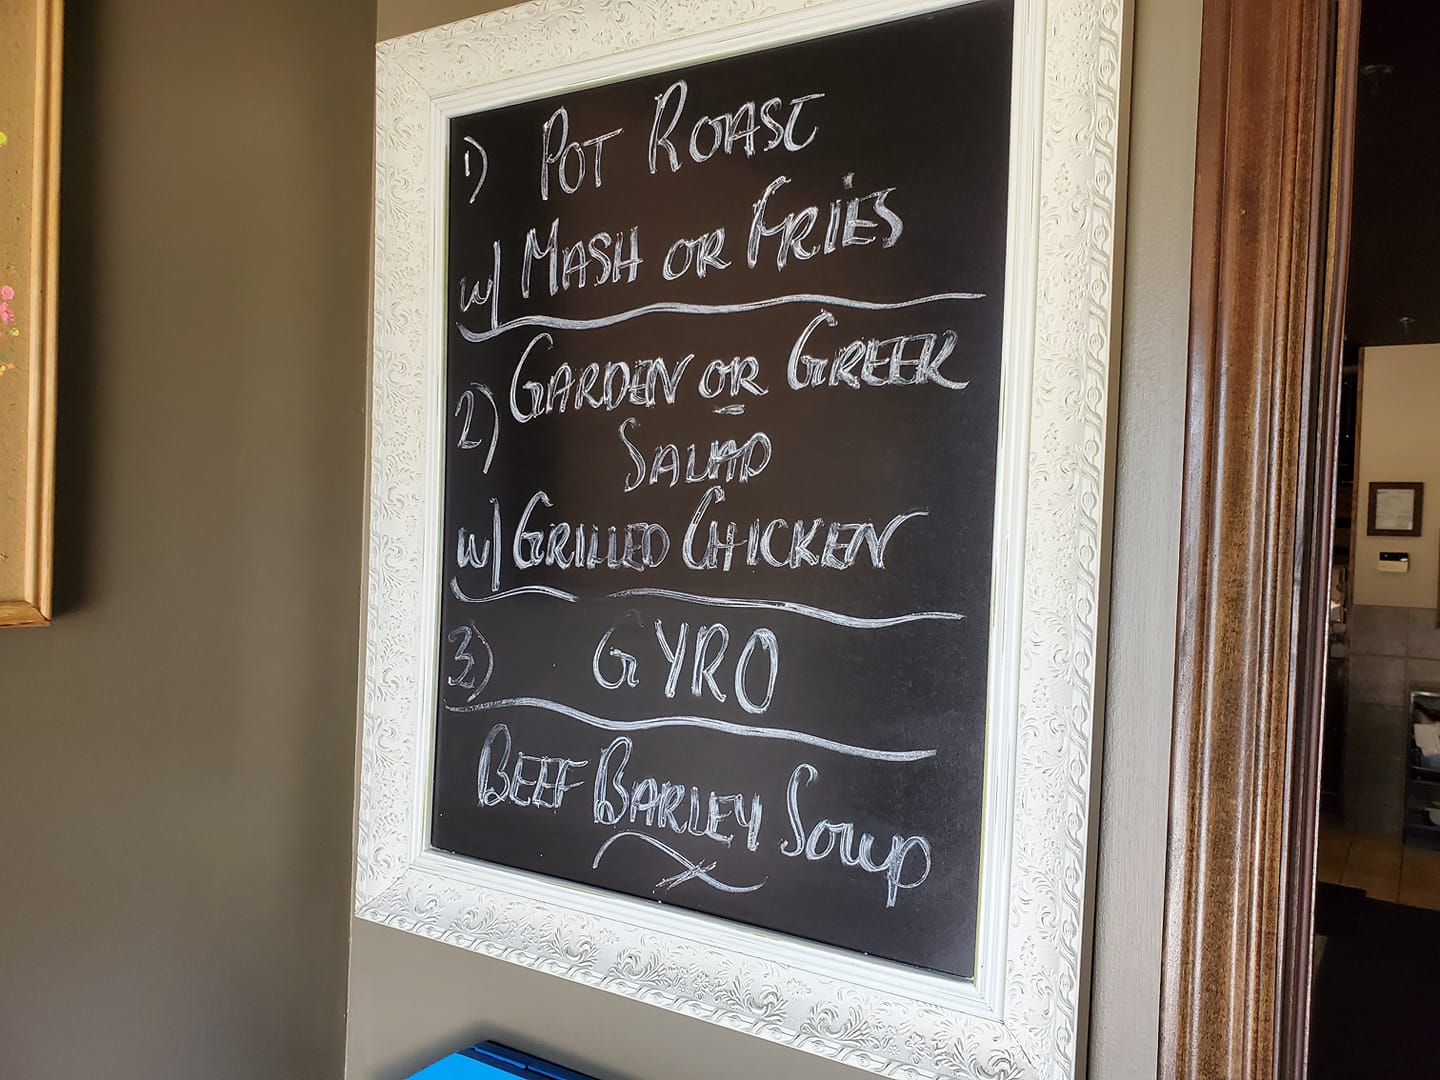 1) POT ROAST
w/ MASH OR FRIES
2) GARDEN OR GREEK
SALAD
w/ GRILLED CHICKEN
3) GYRO
BEEF BARLEY SOUP